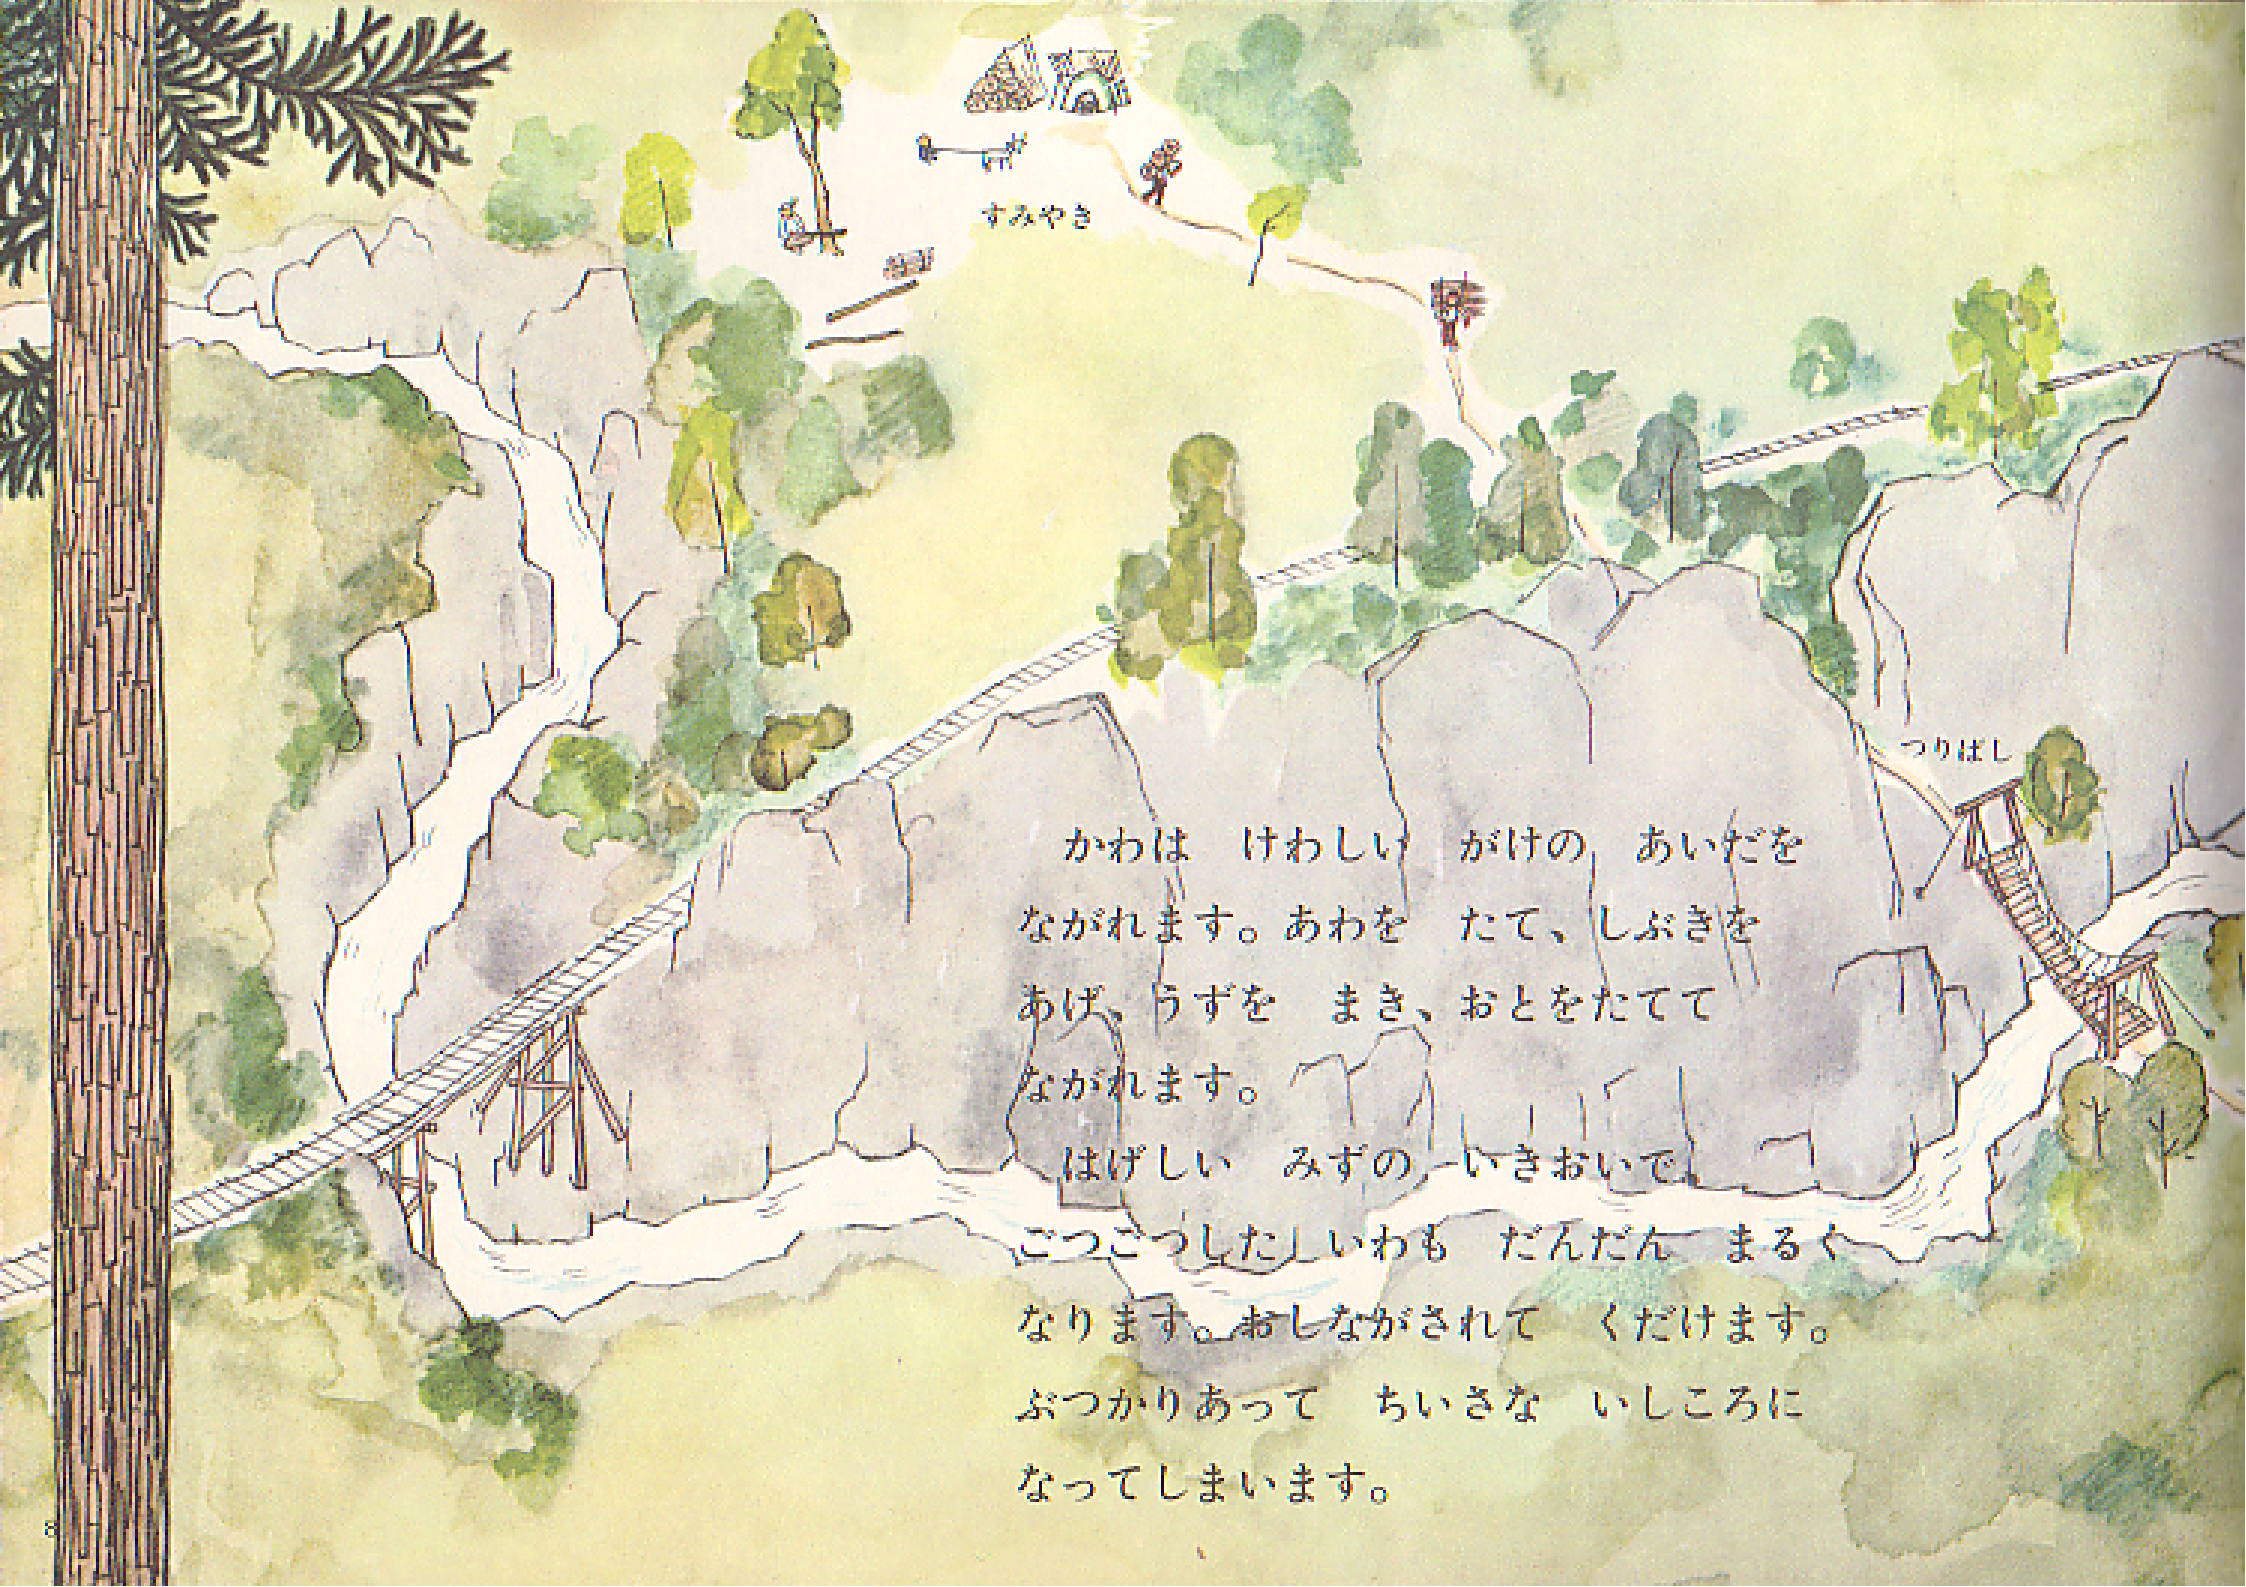 すみやき
つりばし
かわは　けわしい　がけの　あいだを
ながれます。あわを　たて、しぶきを
あげ、うずを　まき、おとをたてて
ながれます。
はげしい　みずの　いきおいで
ごつごつした　いわも　だんだん　まるく
なります。おしながされて　くだけます。
ぶつかりあって　ちいさな　いしころに
なってしまいます。
8